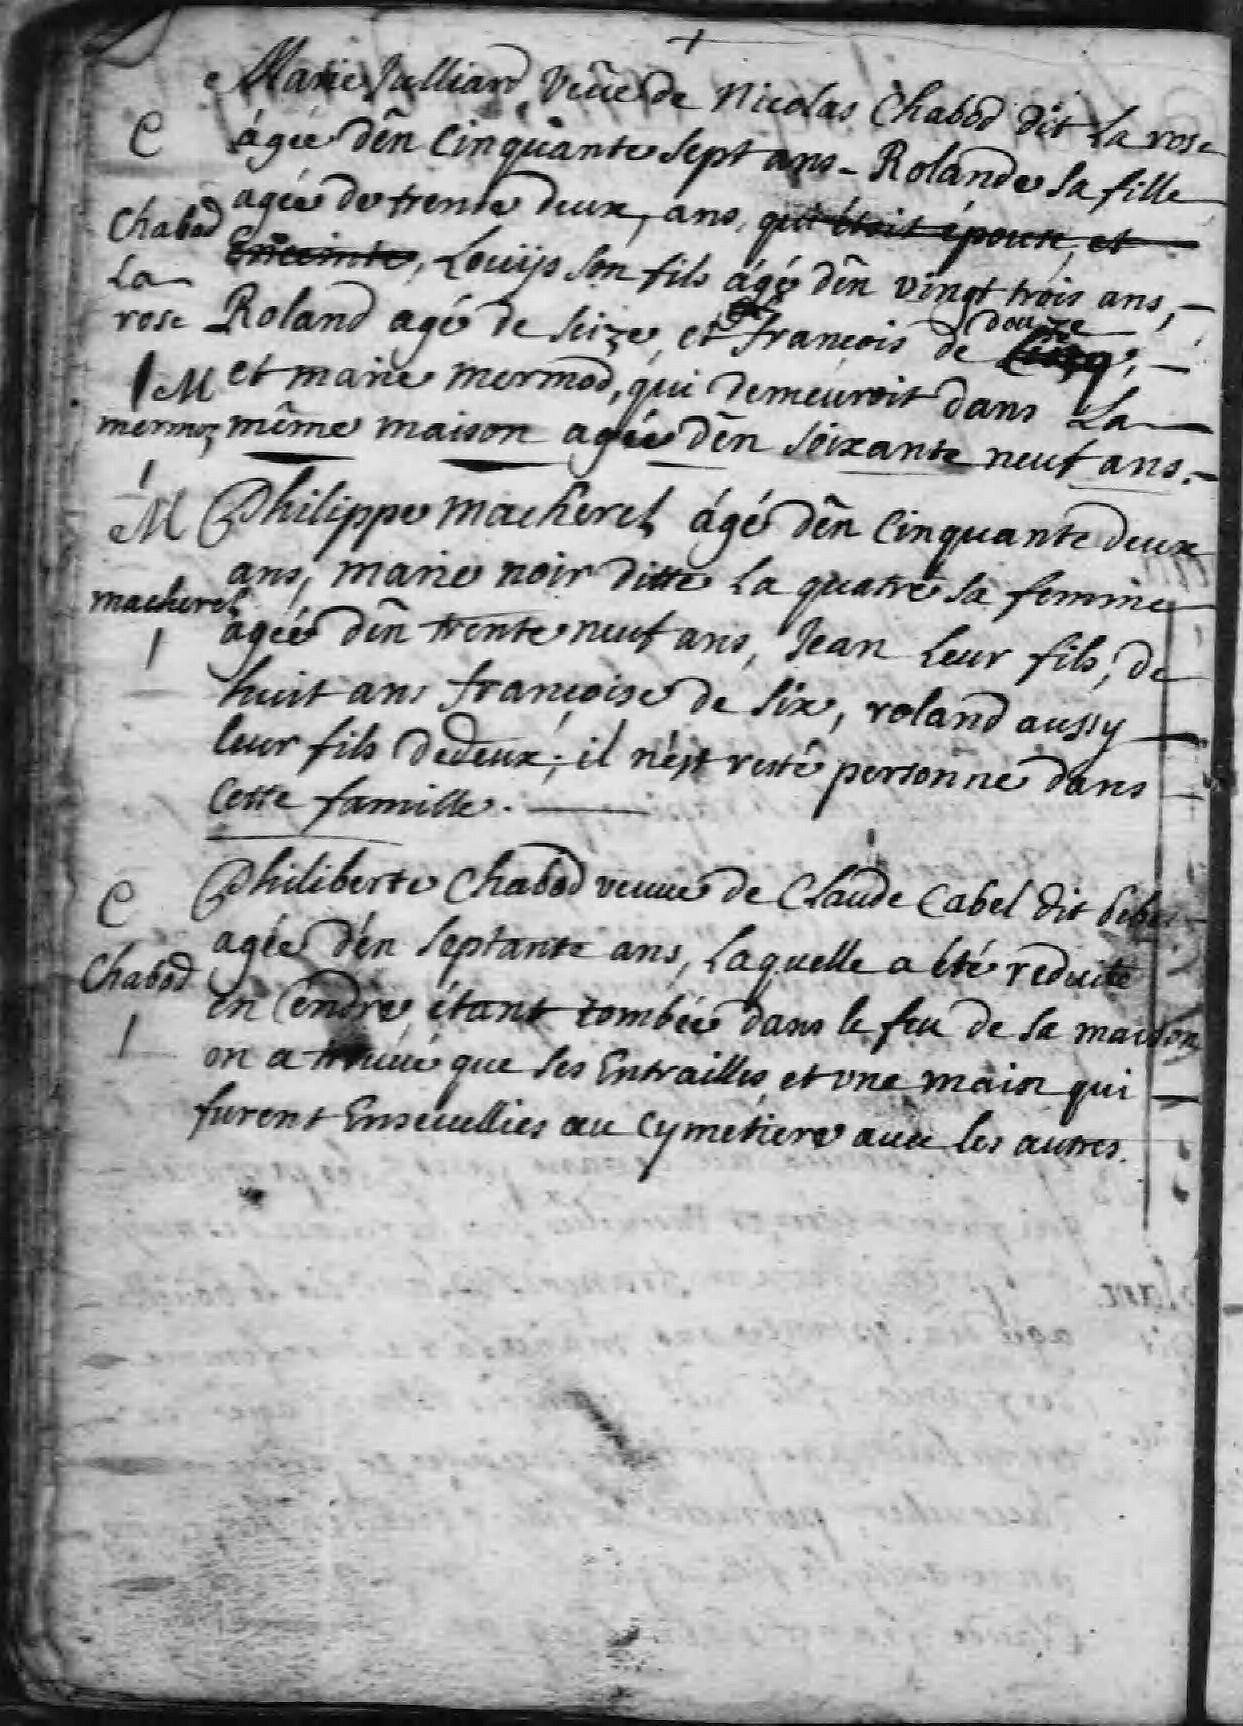 Marie Julliard, veüe de Nicolas Chabod dit La rose
C
ágée dên cinquante sept ans - Rolande sa fille
Chabod
agée de trente deux, ans, qui étoit épouse, et
Enceinte, Louys son fils ágé dên vingt trois ans,
La
rose
Roland agé de seize, et françois de douze
M
et marie mermod, qui demeuroit dans La
mermoz
même maison agée dên soixante neuf ans.
M
Philippe macherel ágé dên cinquante deux
ans, marie noir ditte La quatre sa femme
macherel
agée dên trente neuf ans, Jean Leur fils, de
huit ans françoise de six, roland aussy
leur fils de deux; il n'est resté personne dans
cette famille.
C
Philiberte Chabod veuue de Claude Cabel dit
Chabod
agée d'én septante ans, Laquelle a été reduite
en Cendre, étant tombée dans le feu de sa maison
on a trouué que ses Entrailles, et vne main qui
furent Enseuellies au cymetiere auec les autres.